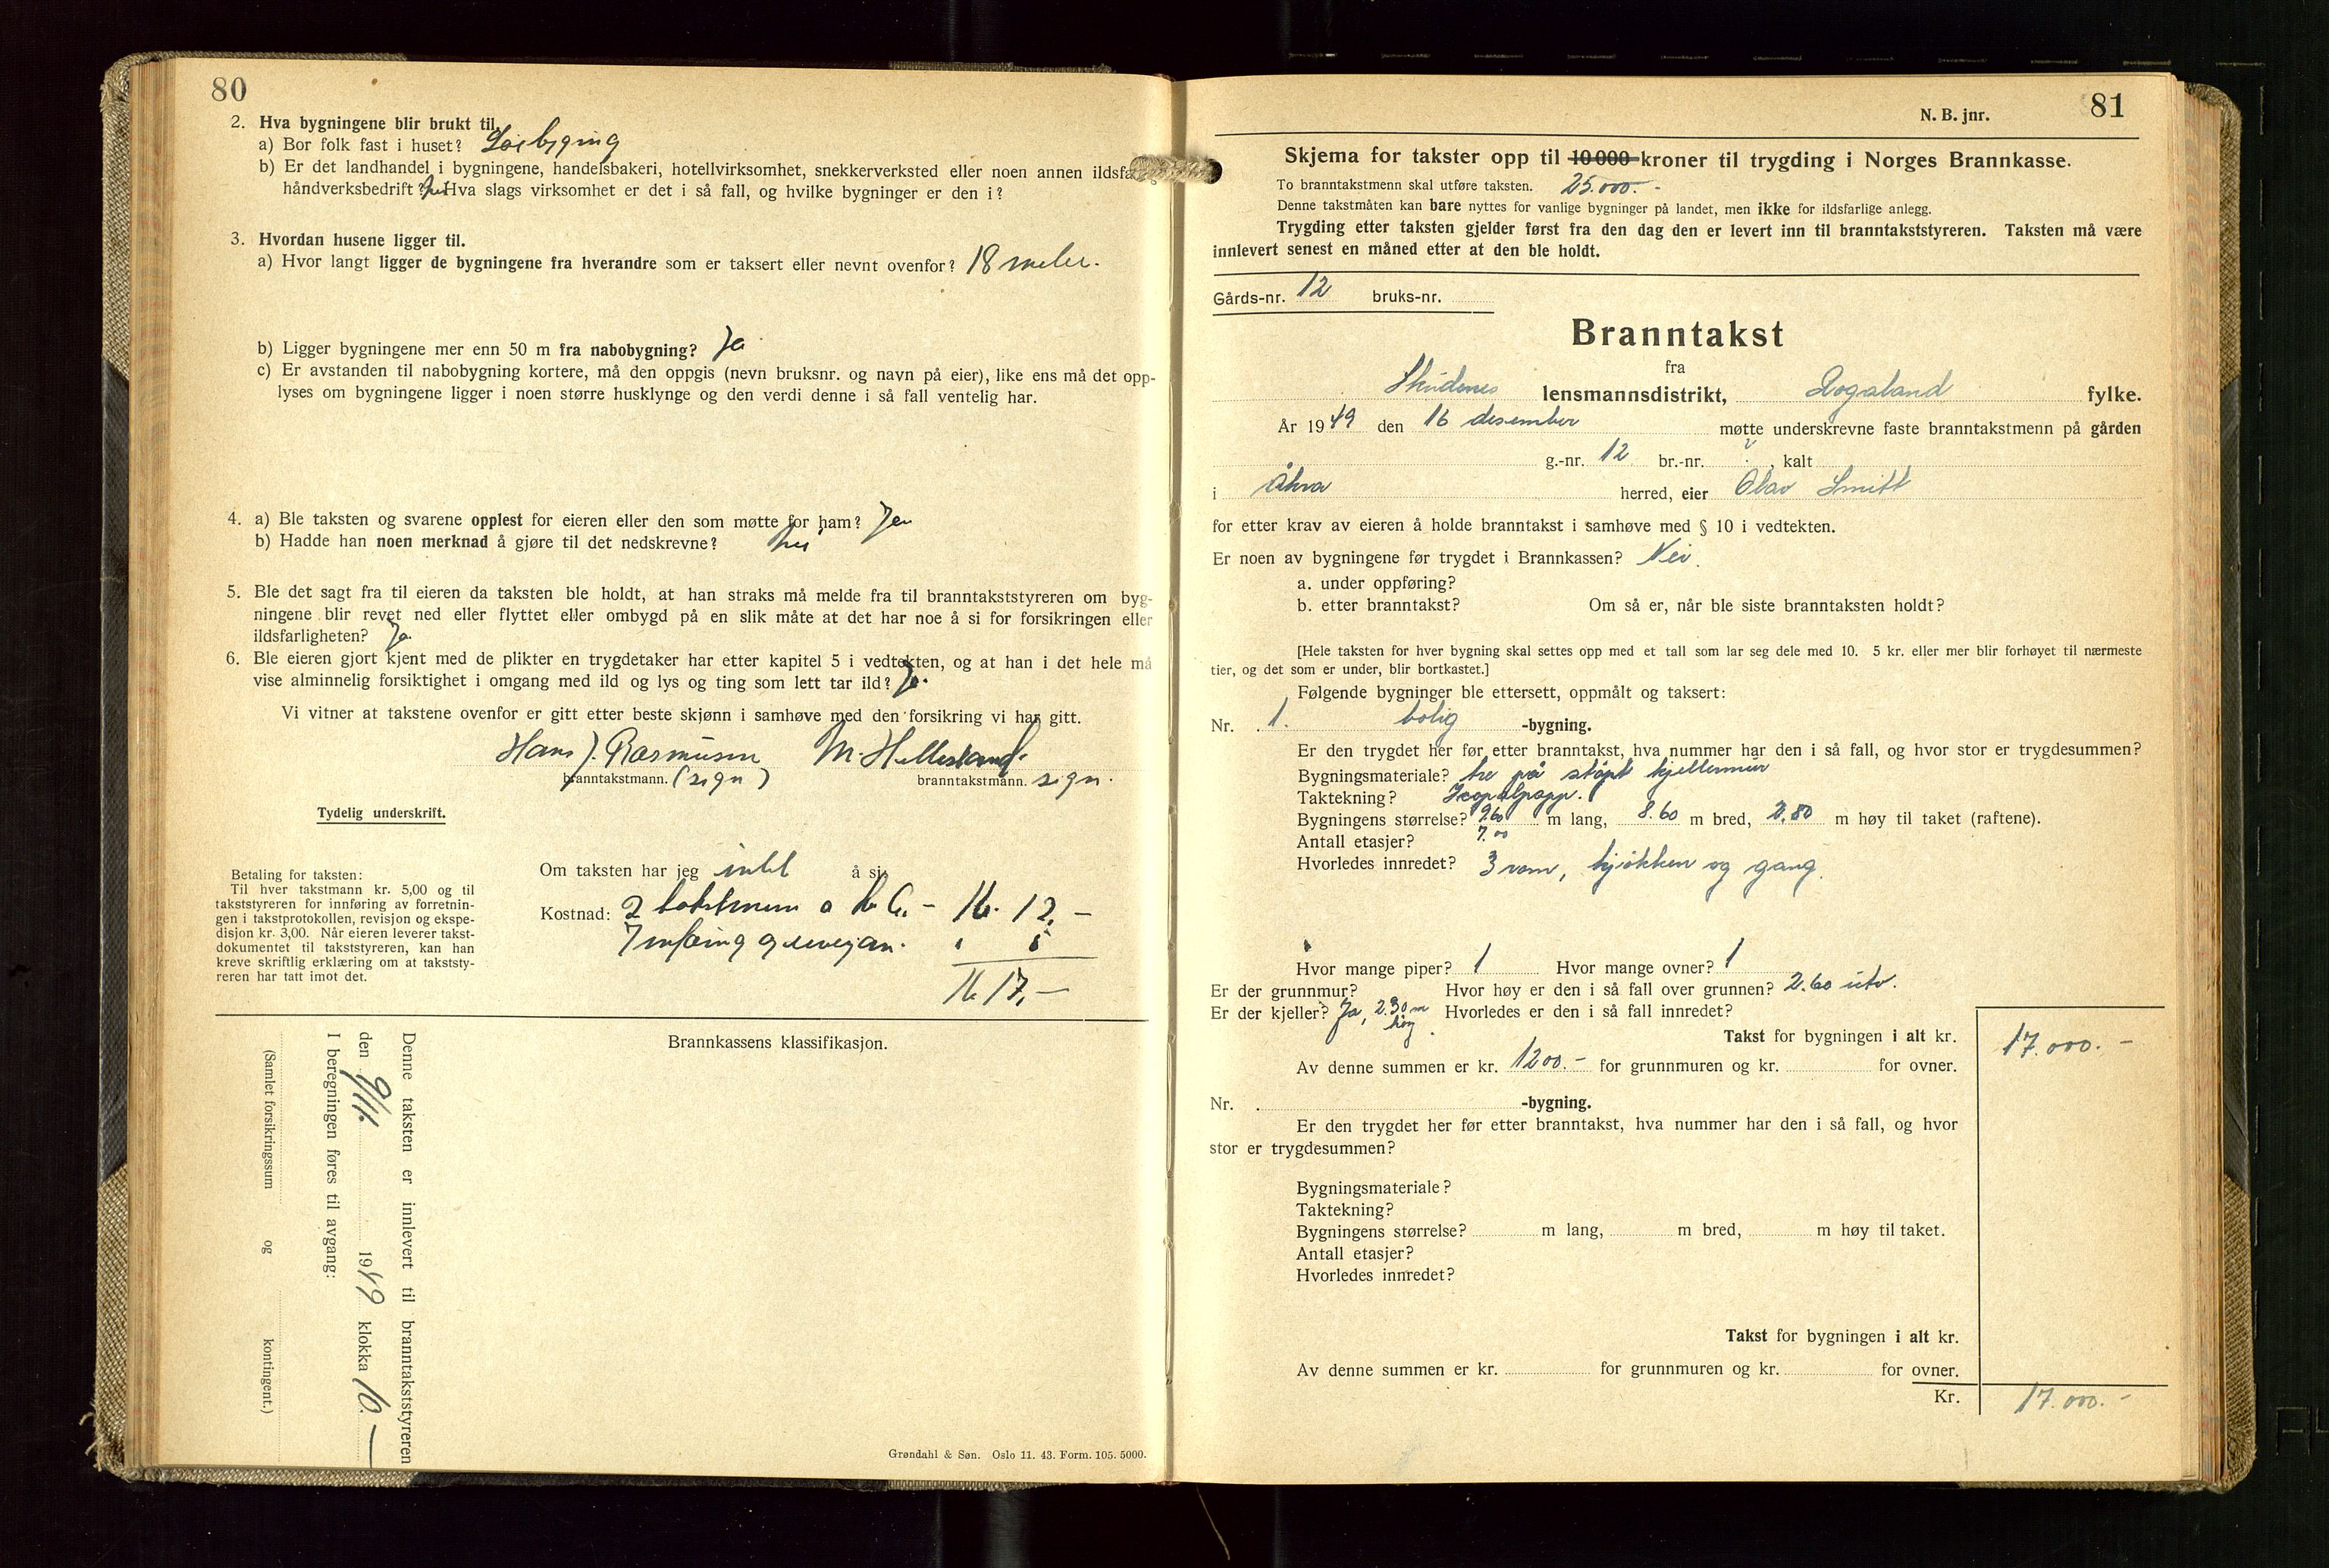 80
2. Hva bygningene blir brukt til.
a) Bor folk fast i huset?
b) Er det landhandel i bygningene, handelsbakeri, hotellvirksomhet, snekkerverksted eller noen annen
håndverksbedrift? Nei Hva slags virksomhet er det i så fall, og hvilke bygninger er den i?
3. Hvordan husene ligger til.
a) Hvor langt ligger de bygningene fra hverandre som er taksert eller nevnt ovenfor? 18 meter.
b) Ligger bygningene mer enn 50 m fra nabobygning? Ja
c) Er avstanden til nabobygning kortere, må den oppgis (nevn bruksnr. og navn på eier), like ens må det opp-
lyses om bygningene ligger i noen større husklynge og den verdi denne i så fall ventelig har.
4. a) Ble taksten og svarene opplest for eieren eller den som møtte for ham? Ja
b) Hadde han noen merknad å gjøre til det nedskrevne? Nei
5. Ble det sagt fra til eieren da taksten ble holdt, at han straks må melde fra til branntakststyreren om byg-
ningene blir revet ned eller flyttet eller ombygd på en slik måte at det har noe å si for forsikringen eller
ildsfarligheten? Ja.
6. Ble eieren gjort kjent med de plikter en trygdetaker har etter kapitel 5 i vedtekten, og at han i det hele må
vise alminnelig forsiktighet i omgang med ild og lys og ting som lett tar ild? Ja.
Vi vitner at takstene ovenfor er gitt etter beste skjønn i samhøve med den forsikring vi har gitt.
Hans J. Rasmussen M. Hellesland.
branntakstmann. (sign) branntakstmann. sign.
Tydelig underskrift.
Betaling for taksten:
Til hver takstmann kr. 5,00 og til
takststyreren for innføring av forretnin-
gen i takstprotokollen, revisjon og ekspe-
disjon kr. 3,00. Når eieren leverer takst-
dokumentet til takststyreren, kan han
kreve skriftlig erklæring om at takststy-
reren har tatt imot det.
Om taksten har jeg intet å si.
Kostnad: 2 takstmenn a kr 6.- Kr. 12,-
5
Kr 17,-
Denne taksten er innlevert til branntakststyreren
den 9/12 1949 klokka 10.—
I beregningen føres til avgang:
(Samlet forsikringssum og kontingent.)
Brannkassens klassifikasjon.
Grøndahl & Søn. Oslo 11. 43. Form. 105. 5000.
81
N. B. jnr.
Skjema for takster opp til 10 000 kroner til trygding i Norges Brannkasse.
To branntakstmenn skal utføre taksten. 25.000.-
Denne takstmåten kan bare nyttes for vanlige bygninger på landet, men ikke for ildsfarlige anlegg.
Trygding etter taksten gjelder først fra den dag den er levert inn til branntakststyreren. Taksten må være
innlevert senest en måned etter at den ble holdt.
Gårds-nr. 12 bruks-nr.
Branntakst
fra
Skudenes lensmannsdistrikt, Rogaland fylke.
År 1949 den 16 desember møtte underskrevne faste branntakstmenn på gården
g.-nr. 12 br.-nr. ?, kalt
i Åkra herred, eier Olav Smitt
for etter krav av eieren å holde branntakst i samhøve med § 10 i vedtekten.
Er noen av bygningene før trygdet i Brannkassen? Nei.
a. under oppføring?
b. etter branntakst? Om så er, når ble siste branntaksten holdt?
[Hele taksten for hver bygning skal settes opp med et tall som lar seg dele med 10. 5 kr. eller mer blir forhøyet til nærmeste
tier, og det som er under, blir bortkastet.]
Følgende bygninger ble ettersett, oppmålt og taksert:
Nr. 1. bolig -bygning.
Er den trygdet her før etter branntakst, hva nummer har den i så fall, og hvor stor er trygdesummen?
Bygningsmateriale? tre på støpt kjellermur
Taktekning? Icopalpapp.
Bygningens størrelse? 9.60 m lang, 8.60 m bred, 2.80 m høy til taket (raftene).
7.00
Antall etasjer?
Hvorledes innredet? 3 rom, kjøkken og gang.
Hvor mange piper? 1 Hvor mange ovner? 1
Er der grunnmur? Hvor høy er den i så fall over grunnen? 2.60 utv.
Er der kjeller? Ja, 2.30 m høg. Hvorledes er den i så fall innredet?
Takst for bygningen i alt kr. 17.000.-
Av denne summen er kr. 1200.- for grunnmuren og kr. for ovner.
Nr. -bygning.
Er den trygdet her før etter branntakst, hva nummer har den i så fall, og hvor
stor er trygdesummen?
Bygningsmateriale?
Taktekning?
Bygningens størrelse? m lang, m bred, m høy til taket.
Antall etasjer?
Hvorledes innredet?
Takst for bygningen i alt kr.
Av denne summen er kr. for grunnmuren og kr. for ovner.
Kr. 17.000.-